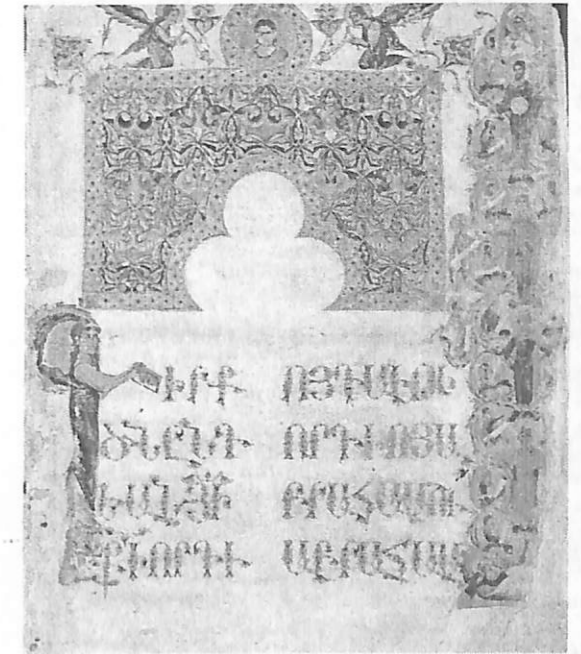 ԳԻՐՔ
ԾՆՆԴ
ԵԱՆՅԻ
ՔԻՈՐԴՒ
ՈՅԴԱՒԹԻ
ՈՐԴՒՈՅԱ
ԲՐԱՀԱՄՈՒ
ԱԲՐԱՀԱՄ